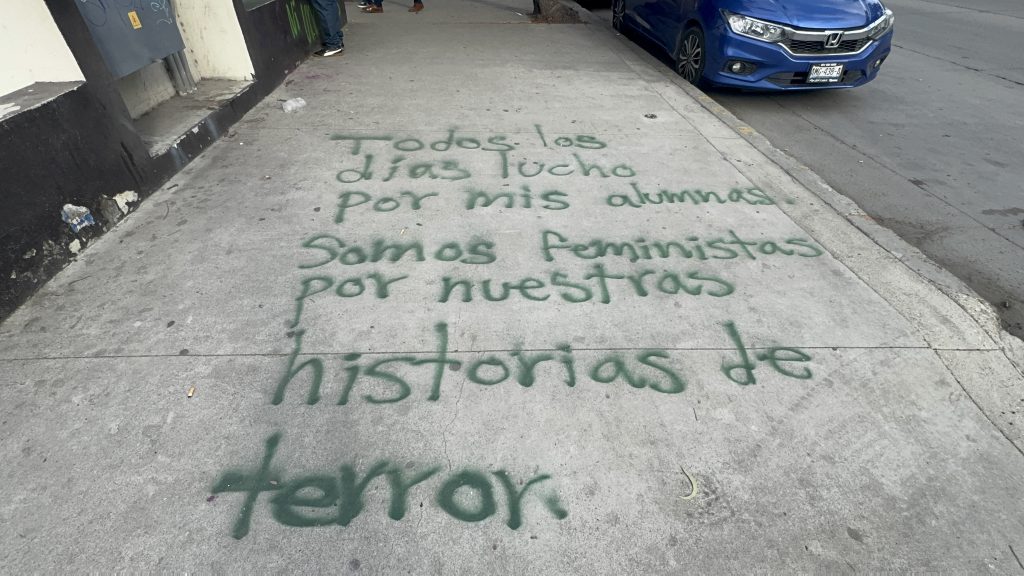 Todos los
días lucho
por mis alumnas.
Somos feministas
por nuestras
historias de
terror.